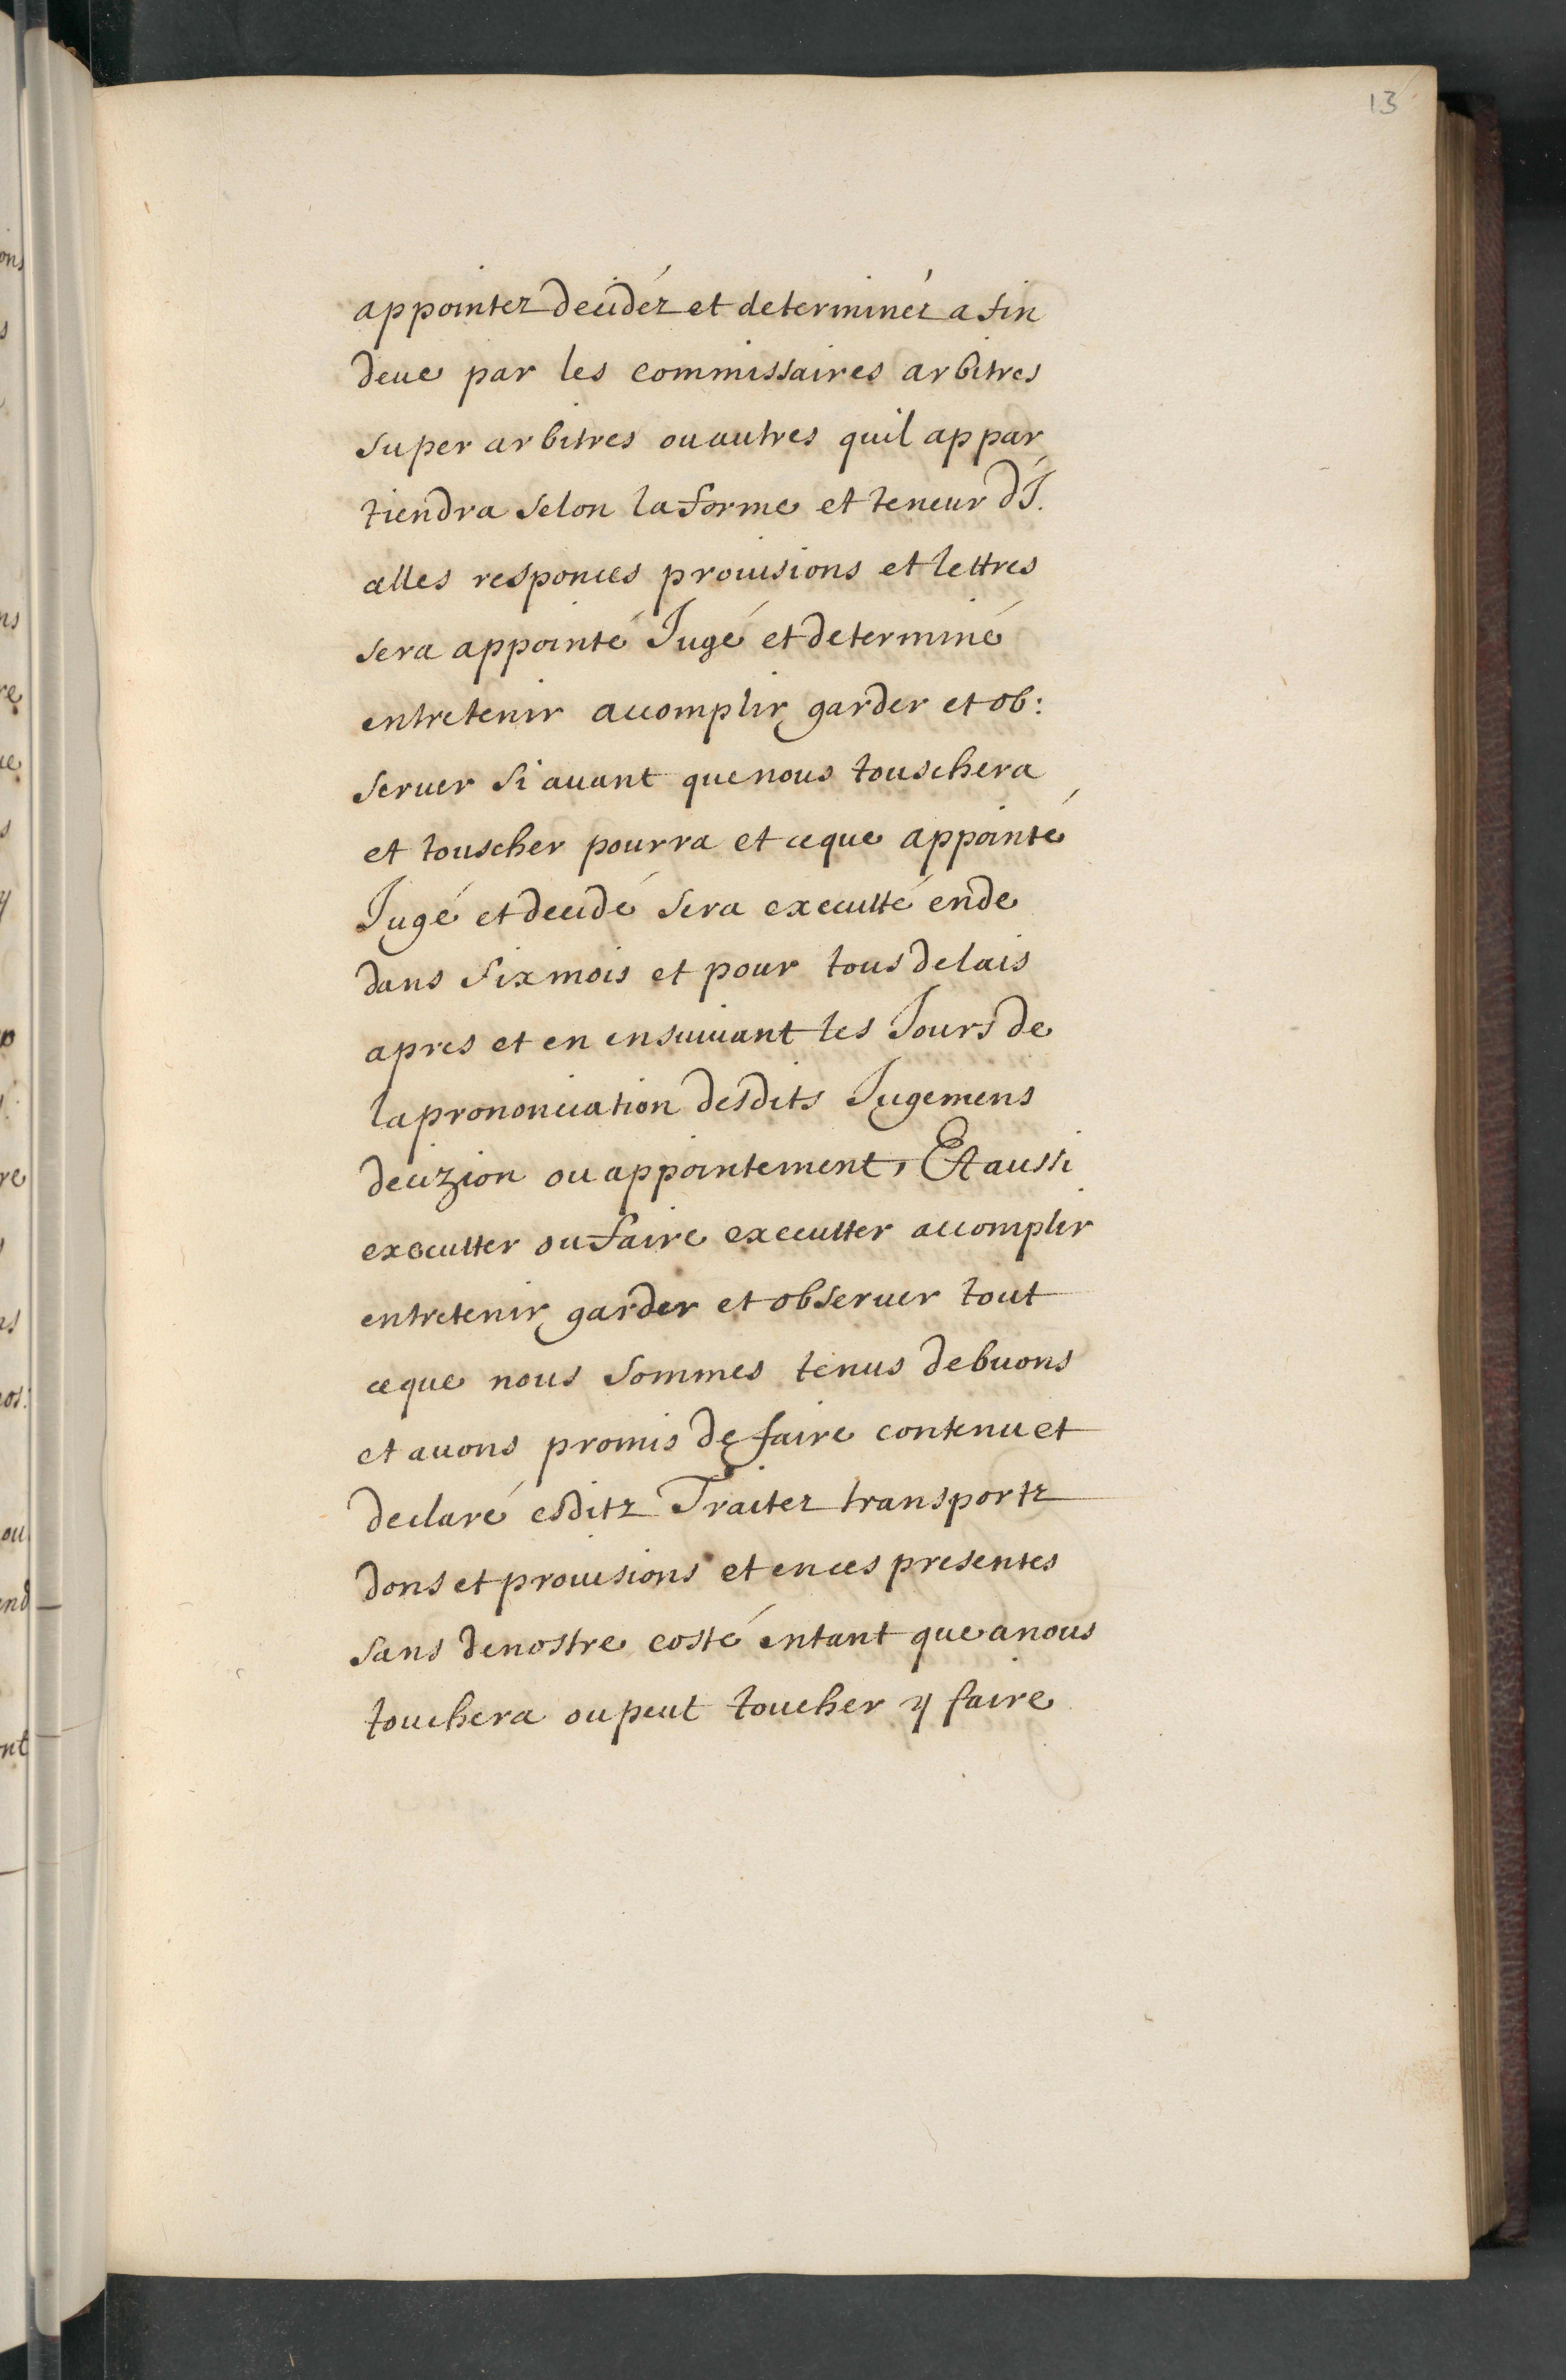 13
appointez decidéz et determinéz a fin
deue par les commissaires arbitres
super arbitres ou autres quil appar
tiendra selon la forme et teneur dJ.
celles responces prouisions et lettres
sera appointé Jugé et determiné
entretenir accomplir garder et ob:
seruer si auant que nous touschera
et touscher pourra et ce que appointé
Jugé et decidé sera executté en de
dans six mois et pour tous delais
apres et en ensuiuant les Jours de
la prononciation desdits Jugemens
decizion ou appointement, Et aussi
executter ou faire executter accomplir
entretenir garder et obseruer tout
ce que nous sommes tenus debuons
et auons promis de faire contenu et
declaré esditz Traitez transportz
dons et prouisions et en ces presentes
sans de nostre costé entant que a nous
touchera ou peut toucher y faire